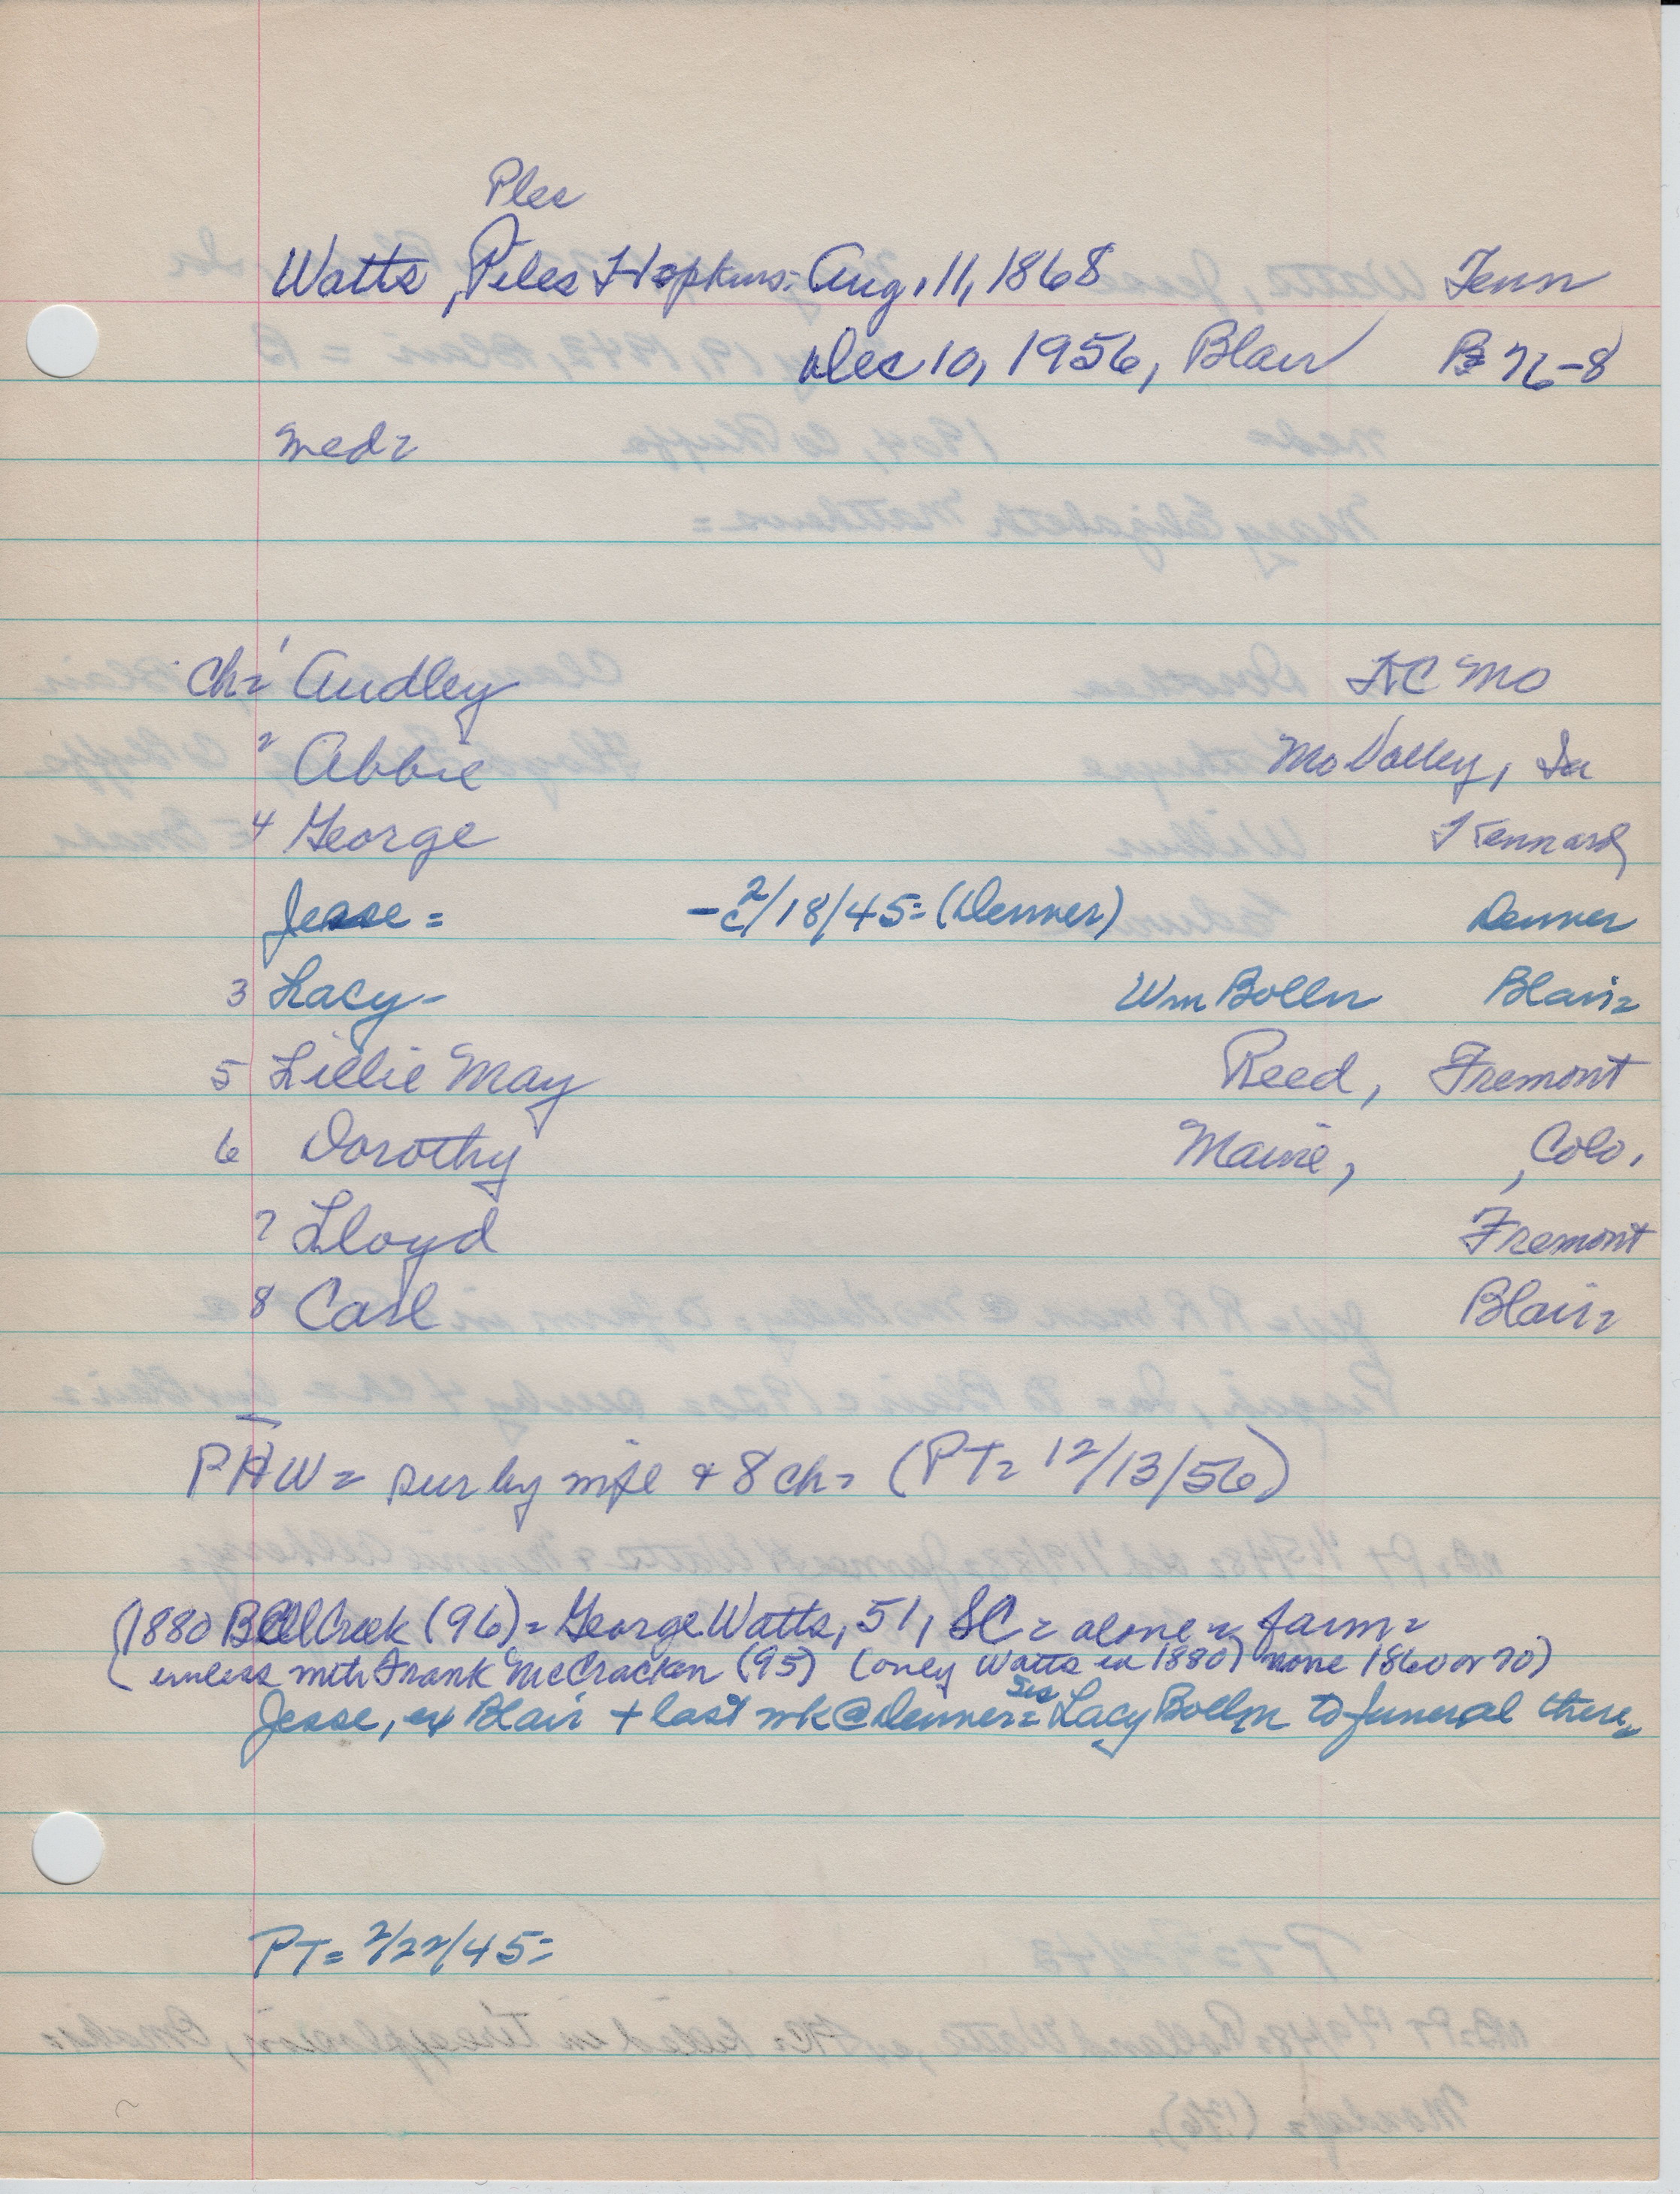 Ples
Watts, Piles Hopkins: Aug. 11, 1868 Tenn
Dec 10, 1956, Blair B 76-8
med=
Ch= 1 Audley KC Mo
2 Abbie Mo Valley, Ia
4 George Kennard
Jesse = - c 2/18/45= (Denver) Denver
3 Lacy- Wm Bolln Blair=
5 Lillie May Reed, Fremont
6 Dorothy Maine, , Colo.
7 Lloyd Fremont
8 Carl Blair=
PHW= sur by wife + 8 ch= (PT= 12/13/56)
(1880 Bell Creek (96)= George Watts, 51, SC= alone farm=
( unless with Frank McCracken (95) (only Watts in 1880) none 1860 or 70)
Jesse, ex Blair + last wk @ Denver= Sis Lacy Bolln to funeral there=
PT= 2/22/45=